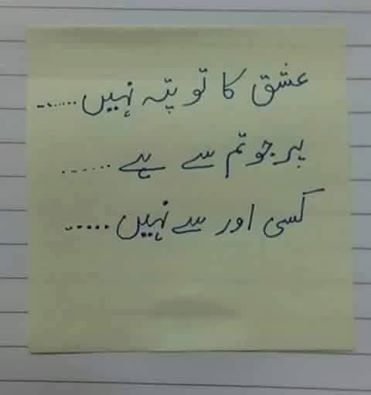 عشق کا تو پتہ نہیں......
پر جو تم سے ہے ......
کسی اور سے نہیں.....